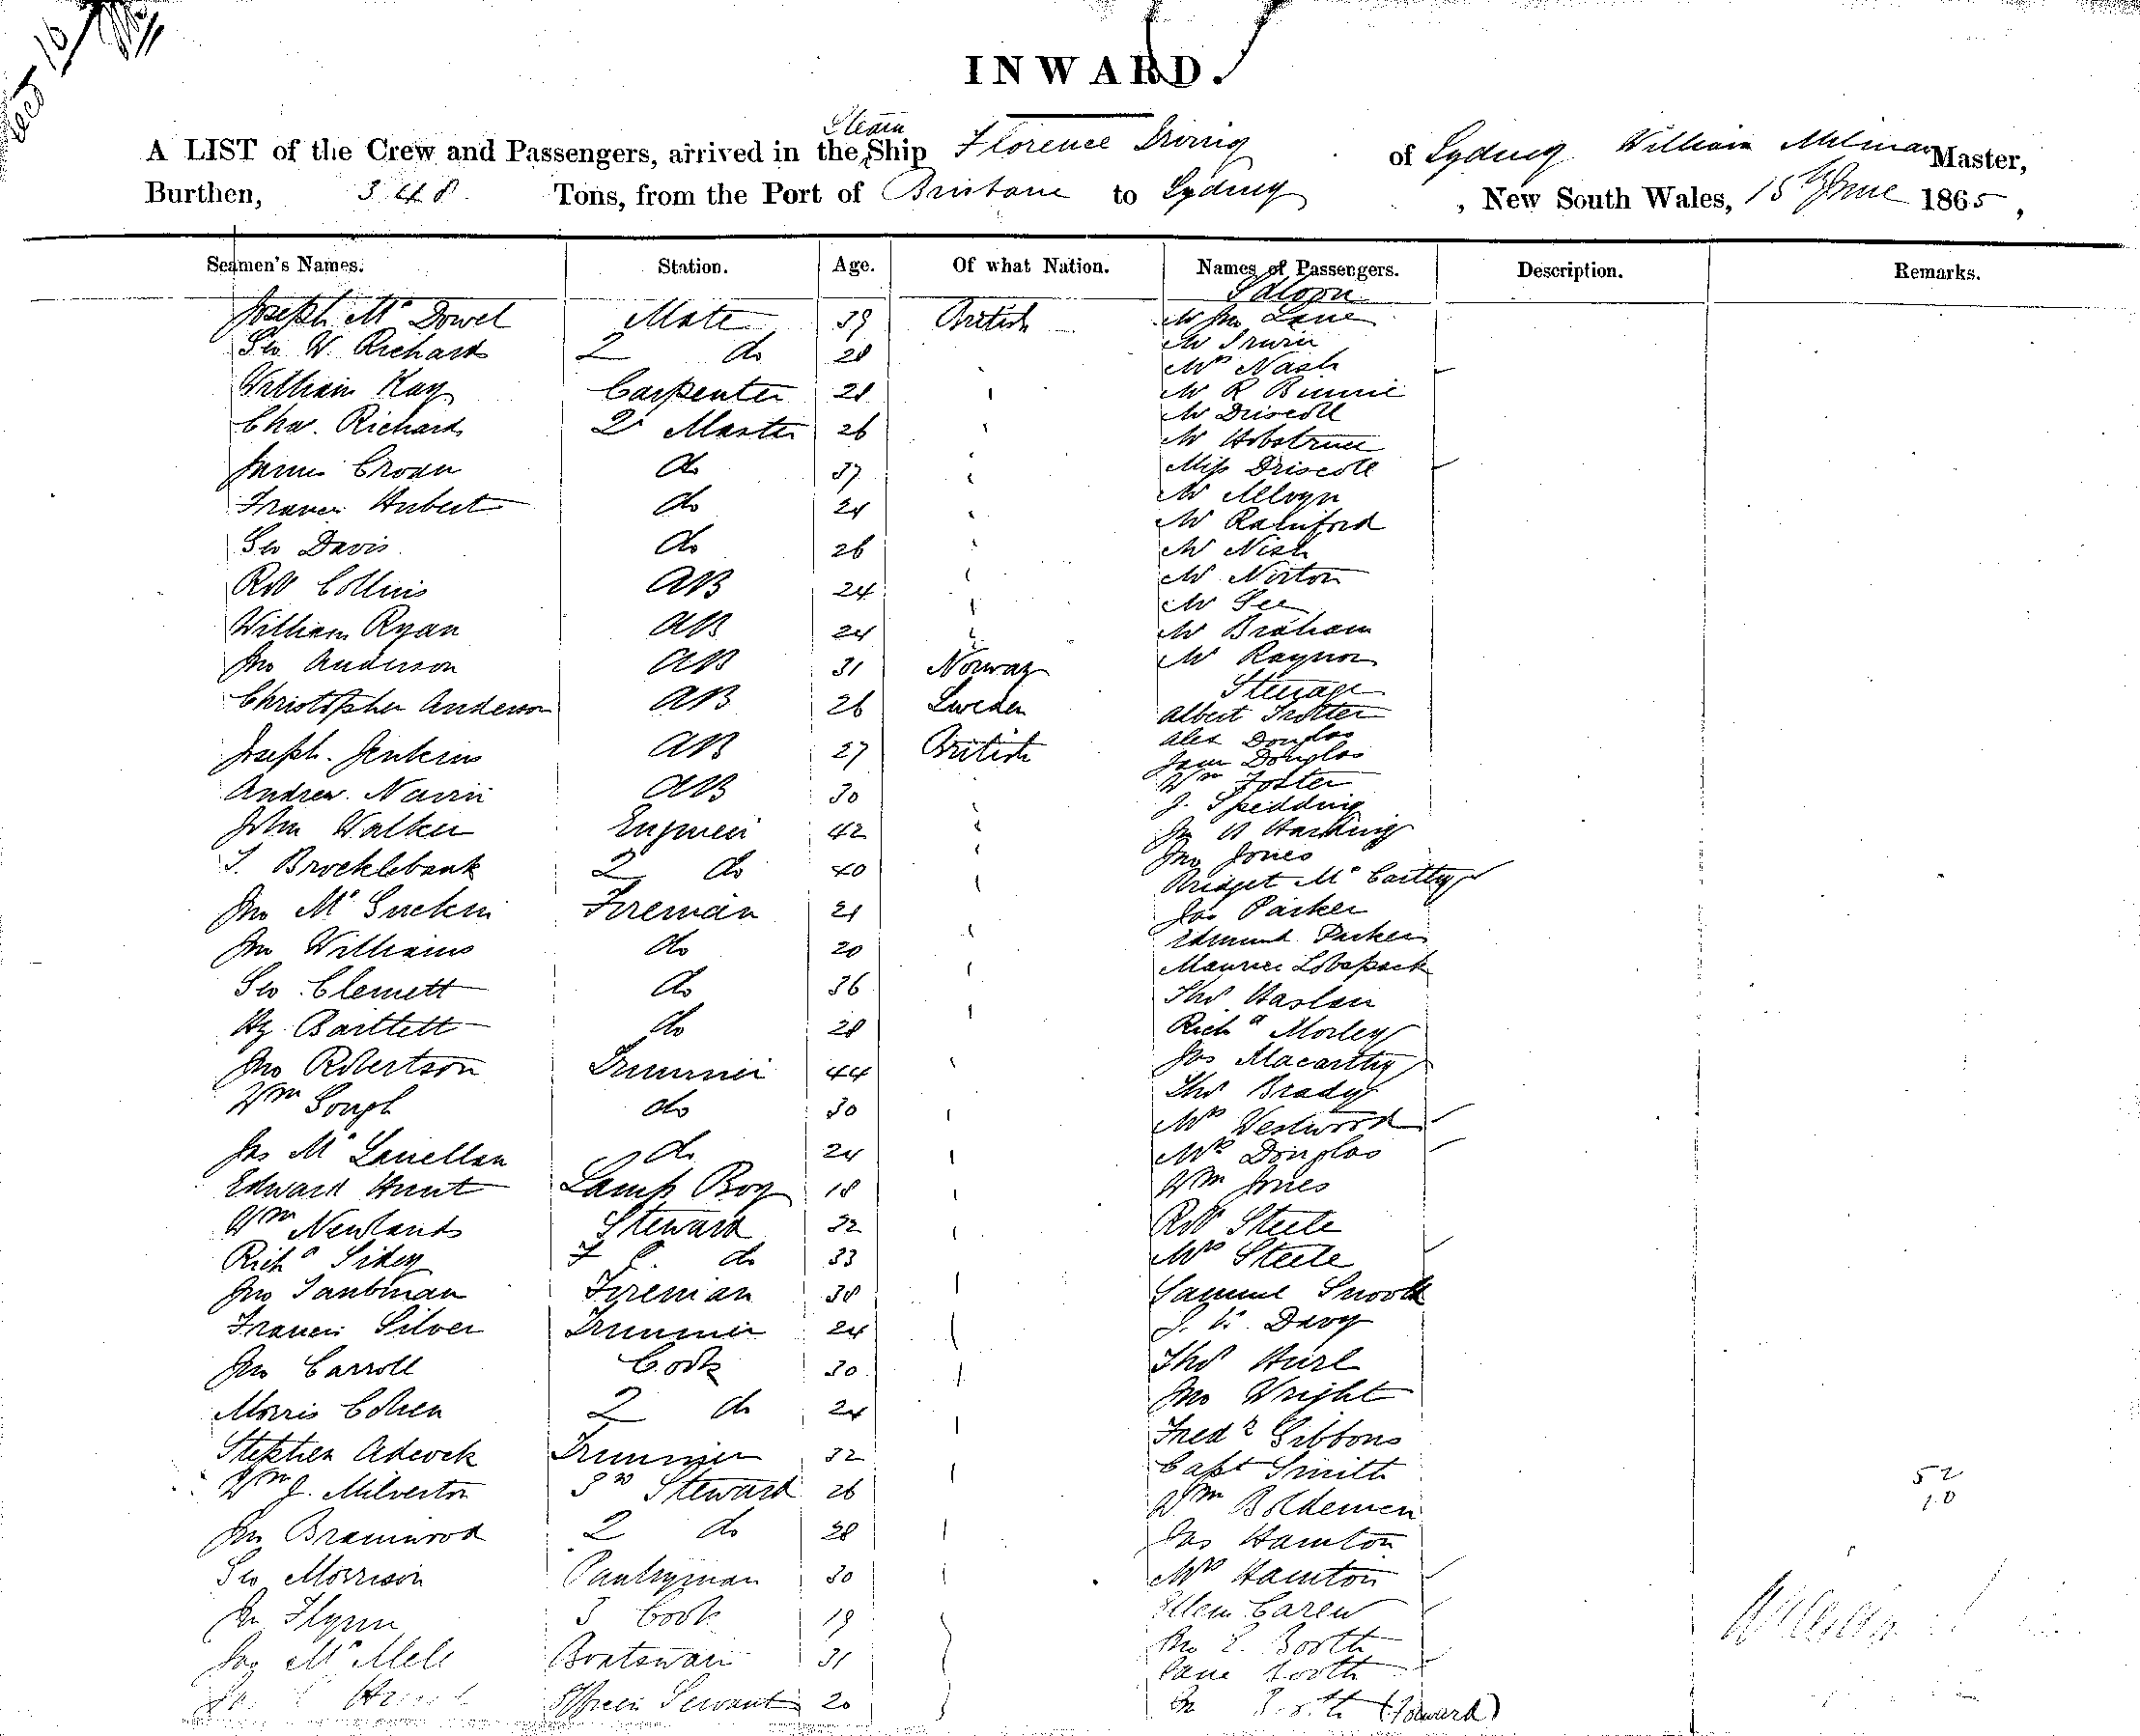 INWARD.
A LIST of the Crew and Passengers, arrived in the Steam Ship Florence Irving of Sydney William Milman Master,
Burthen, 348 Tons, from the Port of Brisbane to Sydney, New South Wales, 15th June 1865,
Seamen's Names. Station. Age. Of what Nation. Names of Passengers. Description. Remarks.
Saloon
Joseph McDowel Mate 39 British Mr Jno Lane
Geo W. Richards 2 do 28 Mr Irwin
Mrs Nash
William Kay Carpenter 28 Mr R Binnie
Chas. Richards 2r Master 26 Mr Driscoll
Mr
James Croan do 37 Miss Driscoll
Francis Hubert do 24 Mr
Mr Rainford
Geo Davis do 26 Mr Nish
Robt Collins AB 24 Mr Norton
Mr Gee
William Ryan AB 24 Mr Braham
Jno Anderson AB 31 Norway Mr Raynor
Steerage
Christopher Anderson AB 26 Sweden Albert Trotter
Alex Douglas
Joseph Jenkins AB 27 British Jane Douglas
Wm Foster
Andrew AB 30 J. Spedding
John Walker Engineer 42 Jno Harding
Jno Jones
T. Brocklebank 2 do 40 Bridget McCarthy
Jno Mc Fireman 21 Jas Parker
Jno Williams do 20 Edmund Parker
Maurice
Geo Clemett do 36 Thos Haslem
Hy Bartlett do 28 Richd Morley
Jno Robertson Trimmer 44 Jas Macarthy
Thos Brady
Wm Gough do 30 Mrs Westwood
Jas McLenellan do 24 Mrs Douglas
Edward Hunt Lamp Boy 18 Wm Jones
Wm Newlands Steward 32 Robt Steele
Richd F C. do 33 Mrs Steele
Jno Taubman Fireman 38 Samuel Snook
Francis Silver Trimmer 24 Davy
Jno Carroll Cook 30 Thos Hurl
Morris Cohen 2 do 24 Jno Wright
Fredk Gibbons
Stephen Adcock Trimmer 32 Capt Smith
Wm J. Milverton Sn Steward 26 Wm 52
10
Jno Bramwood 2 do 28 Jas Hamton
Geo Morrison Pantryman 30 Mrs Hamton
Jn Flynn 3 Cook 19 Ellen Carew
Jno E. Booth
Mc Boatswain 31 Jane Booth
Officers Servant 20 Jn Booth (Forward)